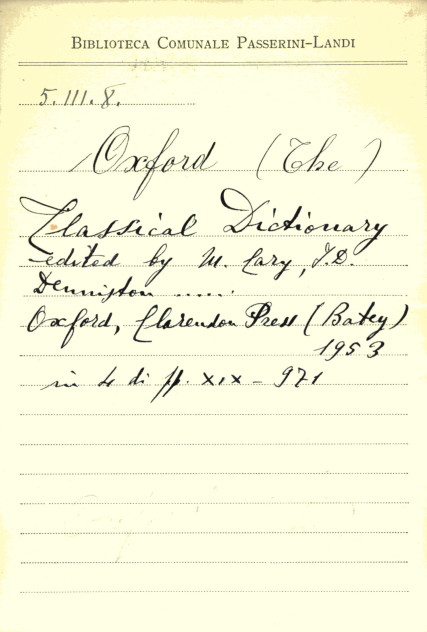 BIBLIOTECA COMUNALE PASSERINI-LANDI
5.III.8.
Oxford (The)
Classical Dictionary
edited by M. Cary, J.D.
Denniston .....
Oxford, Clarendon Press (Batey)
1953
in 4 di pp. XIX - 971